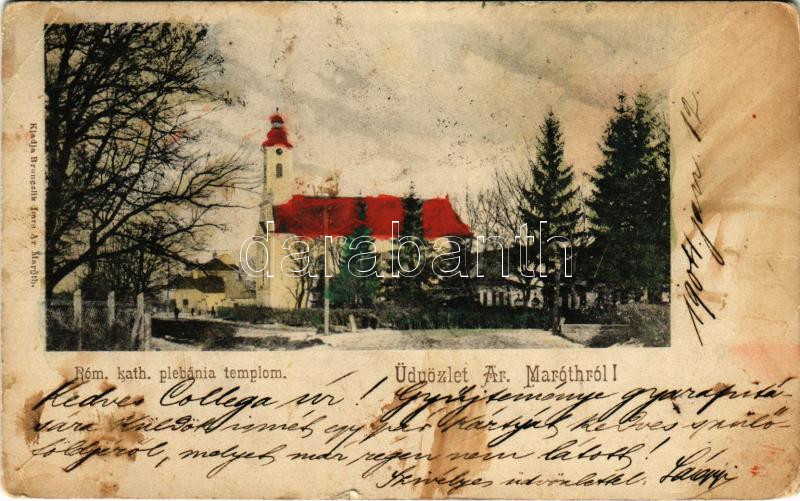 Kiadja Brunczlik Imre Ar Maróth.
1904 jan. 12.
darabanth
Róm. kath. plebánia templom.
Üdvözlet Ar. Maróthról!
Kedves Collega úr! Gyűjteménye gyarapitá-
sára küldök ismét egy pár kártyát kedves szülő-
földjéről, melyet már régen nem látott!
Szivélyes üdvözlettel.